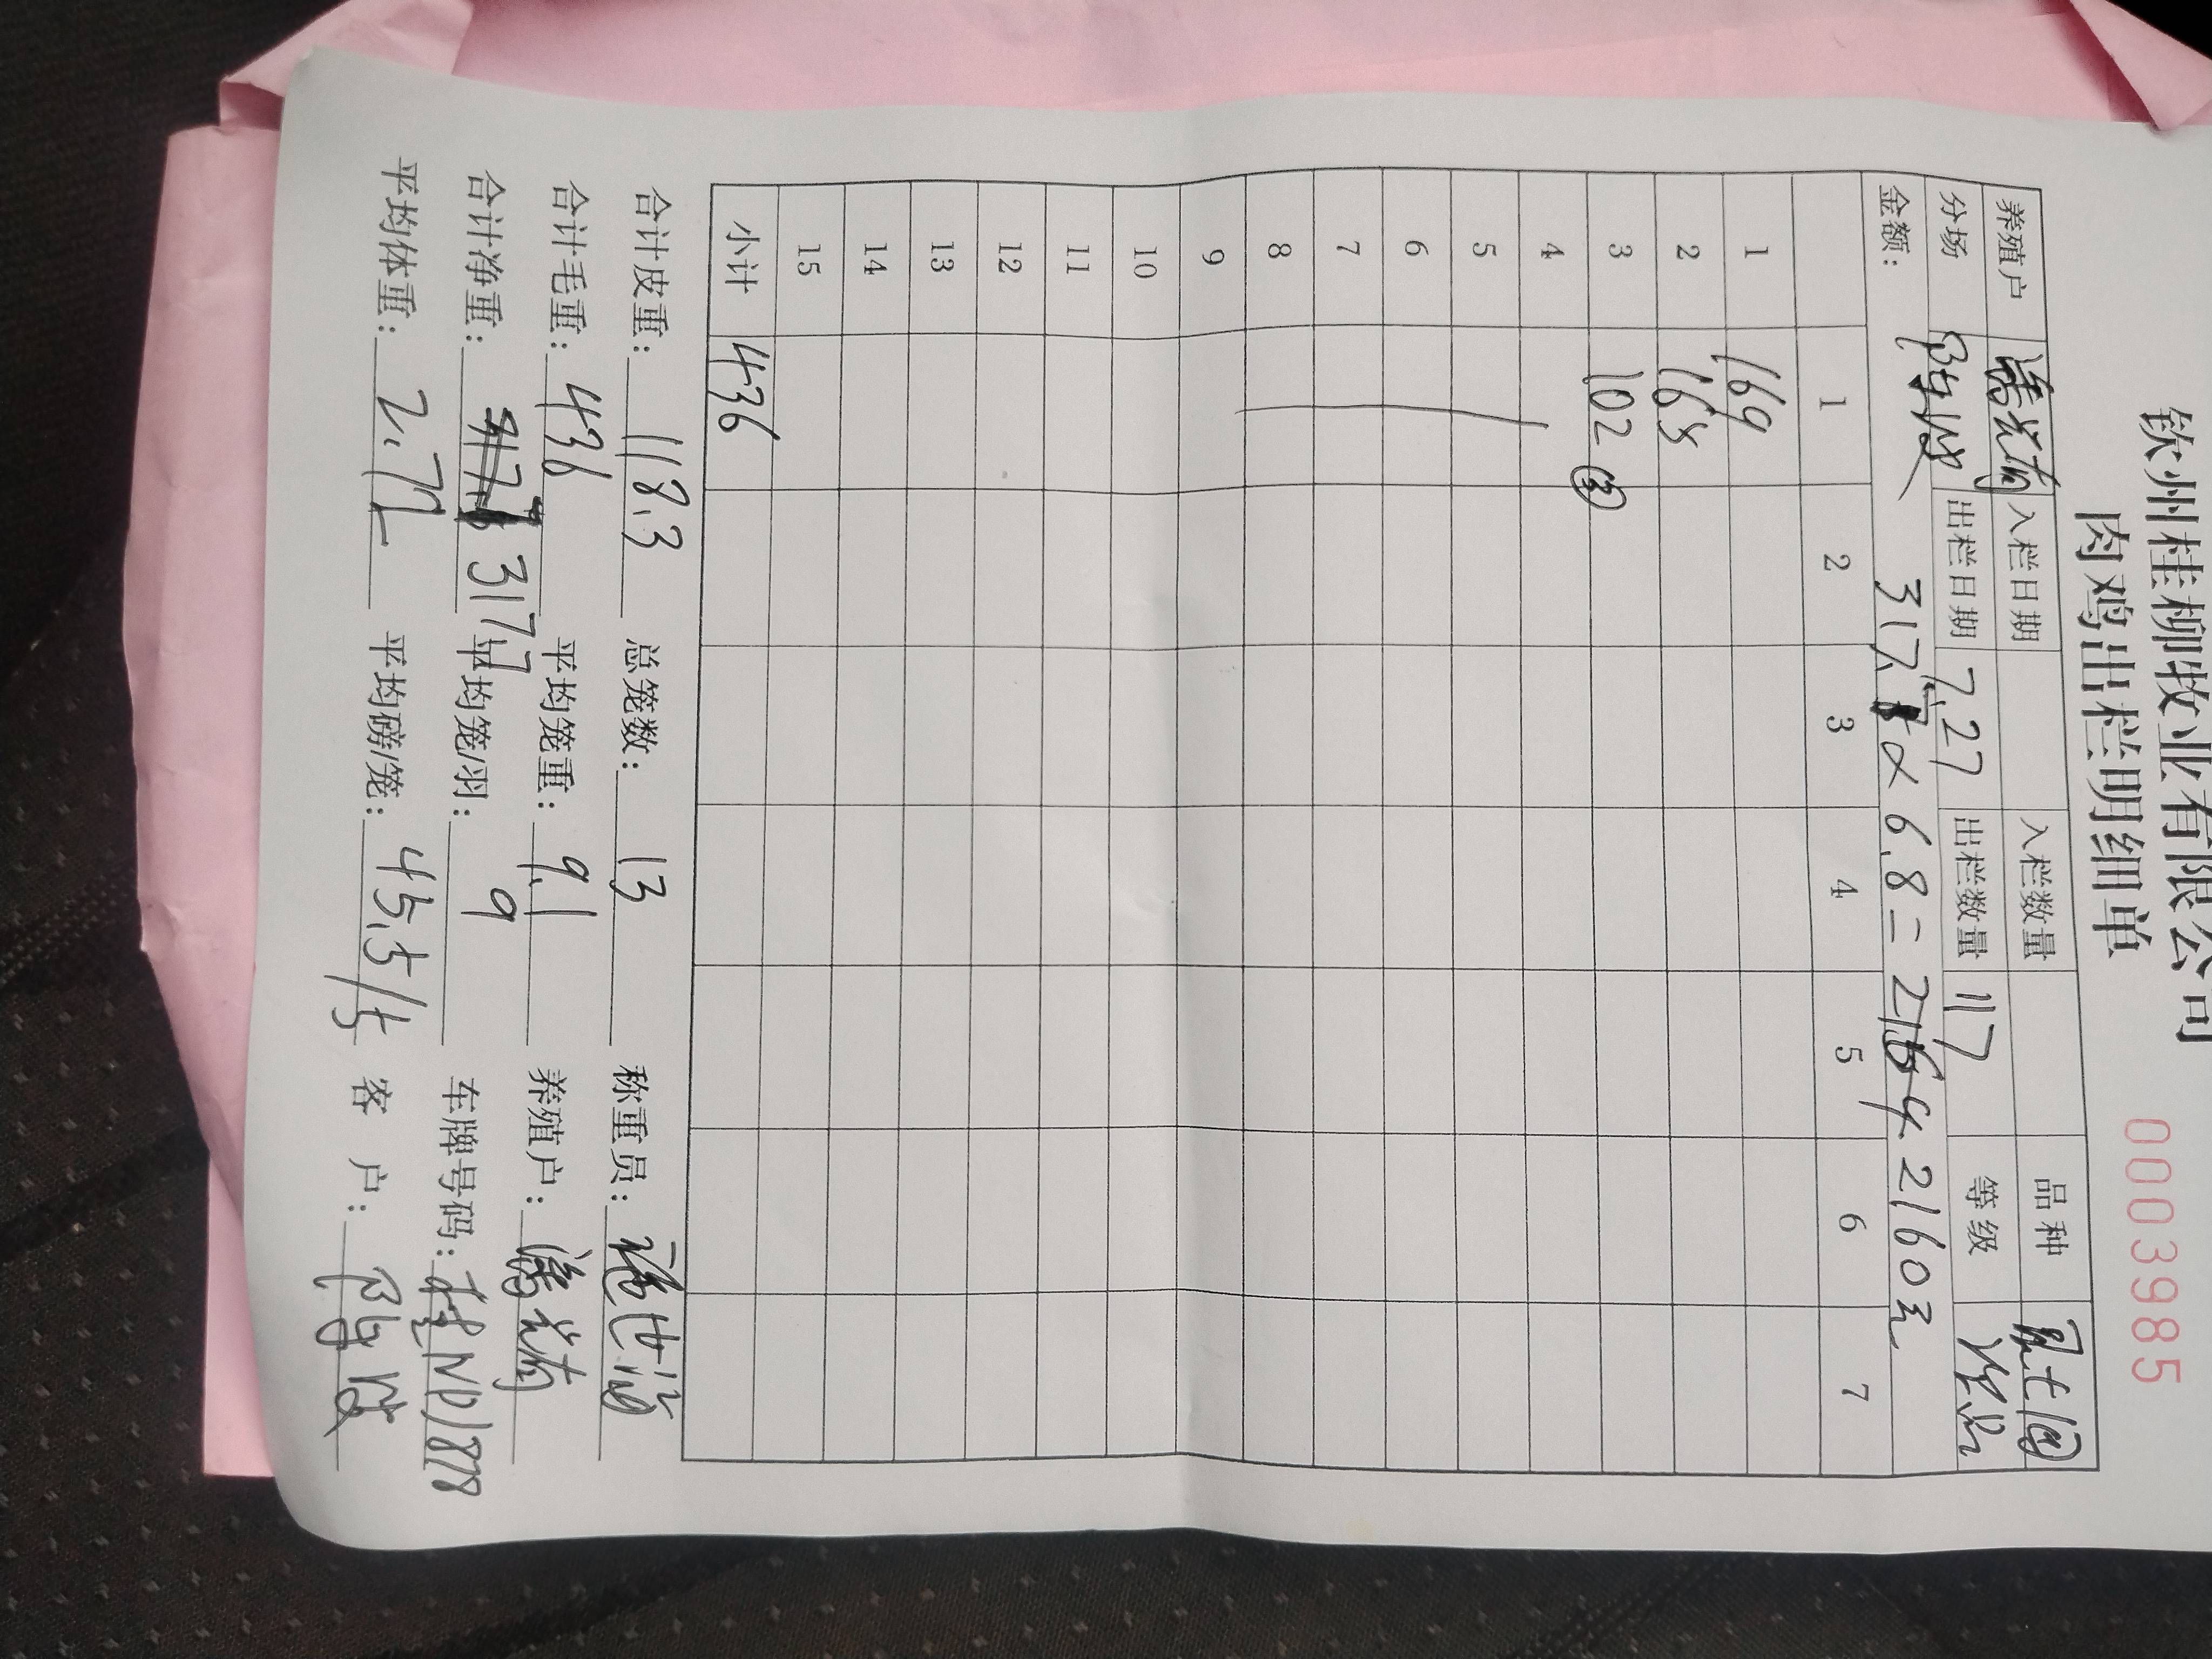 钦州桂柳牧业有限公司
肉鸡出栏明细单
0003985
养殖户 入栏日期 入栏数量 品种
分场 出栏日期 7.27 出栏数量 117 等级
金额： 317.7 × 6.8 = 2164 2160元
1 2 3 4 5 6 7
1 169
2 165
3 102 ③
4
5
6
7
8
9
10
11
12
13
14
15
小计 436
合计皮重： 118.3 总笼数： 13 称重员：
合计毛重： 436 平均笼重： 9.1 养殖户：
合计净重： 317.7 平均笼/羽： 9 车牌号码： 桂ND1878
平均体重： 2.71 平均磅/笼： 45.5/5 客户：